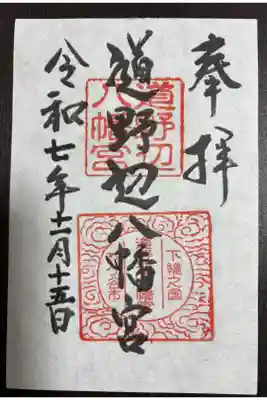 奉拝
道野辺八幡宮
令和七年十一月十五日
道野辺
八幡宮
下總之国